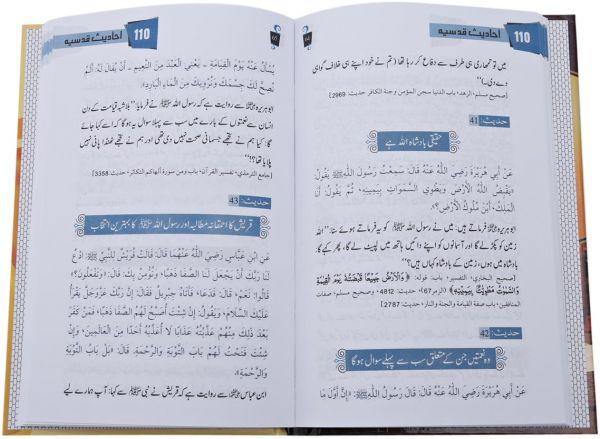 110 احادیث قدسیہ
میں تو تمھاری ہی طرف سے دفاع کر رہا تھا (تم نے خود اپنے ہی خلاف گواہی
دے دی۔)‘‘
[صحیح مسلم، الزهد، باب الدنیا سجن المؤمن وجنة الکافر حدیث: 2969]
حدیث: 41
حقیقی بادشاہ اللہ ہے
عَنْ أَبِي هُرَيْرَةَ رَضِيَ اللَّهُ عَنْهُ قَالَ سَمِعْتُ رَسُولَ اللهِ ﷺ يَقُولُ:
«يَقْبِضُ اللَّهُ الْأَرْضَ وَيَطْوِي السَّمَوَاتِ بِيَمِينِهِ، ثُمَّ يَقُولُ: أَنَا
الْمَلِكُ، أَيْنَ مُلُوكُ الْأَرْضِ؟».
ابوہریرہ فرماتے ہیں: میں نے رسول اللہ ﷺ کو یہ فرماتے ہوئے سنا: ’’اللہ
زمین کو پکڑ لے گا اور آسمانوں کو اپنے دائیں ہاتھ میں لپیٹ لے گا، پھر کہے گا:
میں بادشاہ ہوں، زمین کے بادشاہ کہاں ہیں؟‘‘
[صحیح البخاری، التفسیر، باب قوله: ﴿وَالْأَرْضُ جَمِيعًا قَبْضَتُهُ يَوْمَ الْقِيَامَةِ
وَالسَّمَوَاتُ مَطْوِيَّاتٌ بِيَمِينِهِ﴾ (الزمر 67)، حدیث: 4812، وصحیح مسلم، صفات
المنافقین، باب صفة القیامة والجنة والنار، حدیث: 2787]
حدیث: 42
وہ نعمتیں جن کے متعلق سب سے پہلے سوال ہوگا
عَنْ أَبِي هُرَيْرَةَ رَضِيَ اللَّهُ عَنْهُ قَالَ: قَالَ رَسُولُ اللهِ ﷺ: «إِنَّ أَوَّلَ مَا
110 احادیث قدسیہ
65
يُسْأَلُ عَنْهُ يَوْمَ الْقِيَامَةِ - يَعْنِي الْعَبْدَ مِنَ النَّعِيمِ - أَنْ يُقَالَ لَهُ: أَلَمْ
نُصِحَّ لَكَ جِسْمَكَ وَنُرْوِيَكَ مِنَ الْمَاءِ الْبَارِدِ».
ابوہریرہ سے روایت ہے کہ رسول اللہ ﷺ نے فرمایا: ’’بلاشبہ قیامت کے دن
انسان سے نعمتوں کے بارے میں سب سے پہلا سوال یہ ہوگا کہ اسے کہا جائے
گا: کیا ہم نے تجھے جسمانی صحت نہیں دی تھی اور ہم نے تجھے ٹھنڈا پانی نہیں
پلایا تھا؟!‘‘
[جامع الترمذی، تفسیر القرآن، باب ومن سورة ألهاكم التكاثر، حدیث: 3358]
حدیث: 43
قریش کا احمقانہ مطالبہ اور رسول اللہ ﷺ کا بہترین انتخاب
عَنِ ابْنِ عَبَّاسٍ رَضِيَ اللَّهُ عَنْهُمَا قَالَ: قَالَتْ قُرَيْشٌ لِلنَّبِيِّ ﷺ: ادْعُ
لَنَا رَبَّكَ أَنْ يَجْعَلَ لَنَا الصَّفَا ذَهَبًا، وَنُؤْمِنُ بِكَ. قَالَ: «وَتَفْعَلُونَ؟»
قَالُوا: نَعَمْ. قَالَ: فَدَعَا، فَأَتَاهُ جِبْرِيلُ فَقَالَ: إِنَّ رَبَّكَ عَزَّوَجَلَّ يَقْرَأُ
عَلَيْكَ السَّلَامَ، وَيَقُولُ: إِنْ شِئْتَ أَصْبَحَ لَهُمُ الصَّفَا ذَهَبًا، فَمَنْ كَفَرَ
بَعْدَ ذَلِكَ مِنْهُمْ عَذَّبْتُهُ عَذَابًا لَا أُعَذِّبُهُ أَحَدًا مِنَ الْعَالَمِينَ، وَإِنْ
شِئْتَ فَتَحْتُ لَهُمْ بَابَ التَّوْبَةِ وَالرَّحْمَةِ. قَالَ: «بَلْ بَابُ التَّوْبَةِ
وَالرَّحْمَةِ».
ابن عباس سے روایت ہے کہ قریش نے نبی ﷺ سے کہا: آپ ہمارے لیے